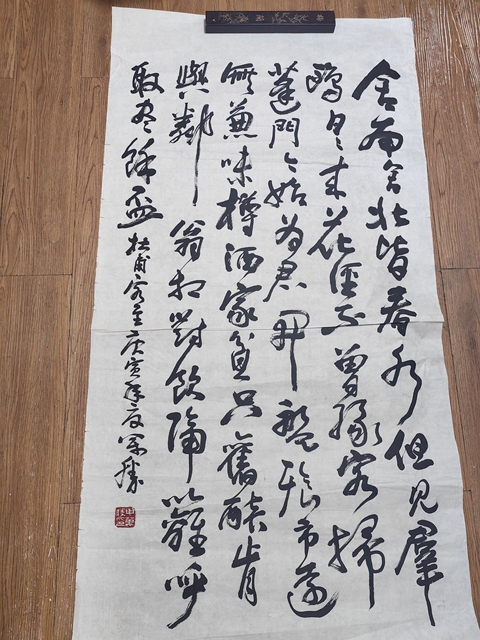 舍南舍北皆春水但見羣
鷗日日来花徑不曾緣客掃
蓬門今始为君開盤飧市遠
無兼味樽酒家貧只舊醅肯
與鄰翁相對飲隔籬呼
取尽餘盃杜甫客至庚寅年夏